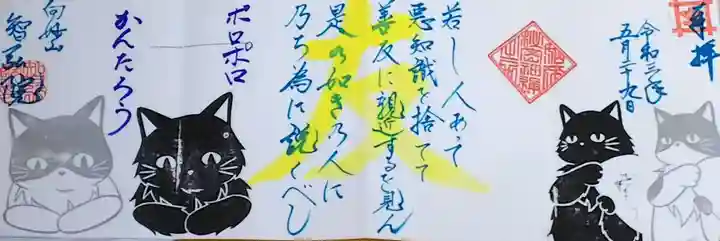 奉拝
令和三年
五月二十九日
若し人あって
悪知識を捨てて
善友に親近するを見ん
是の如き乃人に
乃ち為に説くべし
友
ポロポロ
かんたろう